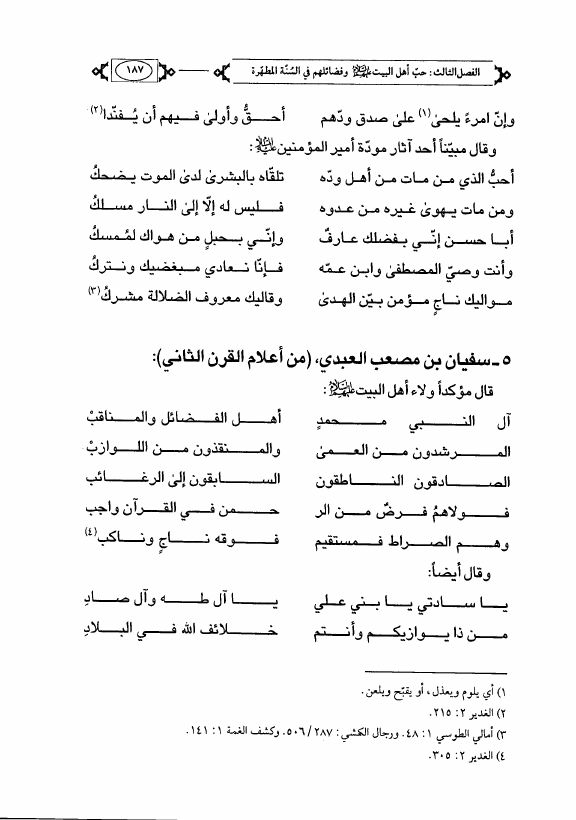 الفصل الثالث: حبّ أهل البيت عليهم السلام وفضائلهم في السُنّة المطهّرة ١٨٧
وإنّ امرءً يلحىٰ (١) علىٰ صدق ودّهم أحـقُّ وأولىٰ فـيهم أن يُـفنّدا (٢)
وقال مبيّناً أحد آثار مودّة أمير المؤمنين عليه السلام:
أحبُّ الذي مـن مـات مـن أهـل ودّه تلقّاه بالبشرىٰ لدىٰ الموت يـضحكُ
ومن مات يـهوىٰ غـيره مـن عـدوه فـليس له إلّا إلىٰ النـار مسـلكُ
أبـا حسـن إنّـي بـفضلك عـارفٌ وإنّـي بـحبلٍ مـن هـواك لمُـمسكُ
وأنت وصيّ المصطفىٰ وابـن عـمّه فـإنّا نـعادي مـبغضيك ونـتركُ
مـواليك نـاجٍ مـؤمن بـيّن الهـدىٰ وقاليك معروف الضلالة مشركُ (٣)
٥ ـ سفيان بن مصعب العبدي، (من أعلام القرن الثاني):
قال مؤكداً ولاء أهل البيت عليهم السلام:
آل النــبي مــحمدٍ أهـل الفـضائل والمـناقبْ
المـرشدون مـن العـمىٰ والمـنقذون مـن اللـوازبْ
الصـادقون النـاطقون السـابقون إلىٰ الرغـائب
فـولاهمُ فـرضٌ مـن الر حـمن فـي القـرآن واجب
وهـم الصـراط فـمستقيم فـوقه نـاجٍ ونـاكب (٤)
وقال أيضاً:
يـا سـادتي يـا بـني عـلي يـا آل طـه وآل صـادِ
مـن ذا يـوازيكـم وأنـتم خـلائف الله فـي البـلادِ
١) أي يلوم ويعذل، أو يقبّح ويلعن.
٢) الغدير ٢: ٢١٥.
٣) أمالي الطوسي ١: ٤٨. ورجال الكشي: ٢٨٧ / ٥٠٦. وكشف الغمة ١: ١٤١.
٤) الغدير ٢: ٣٠٥.